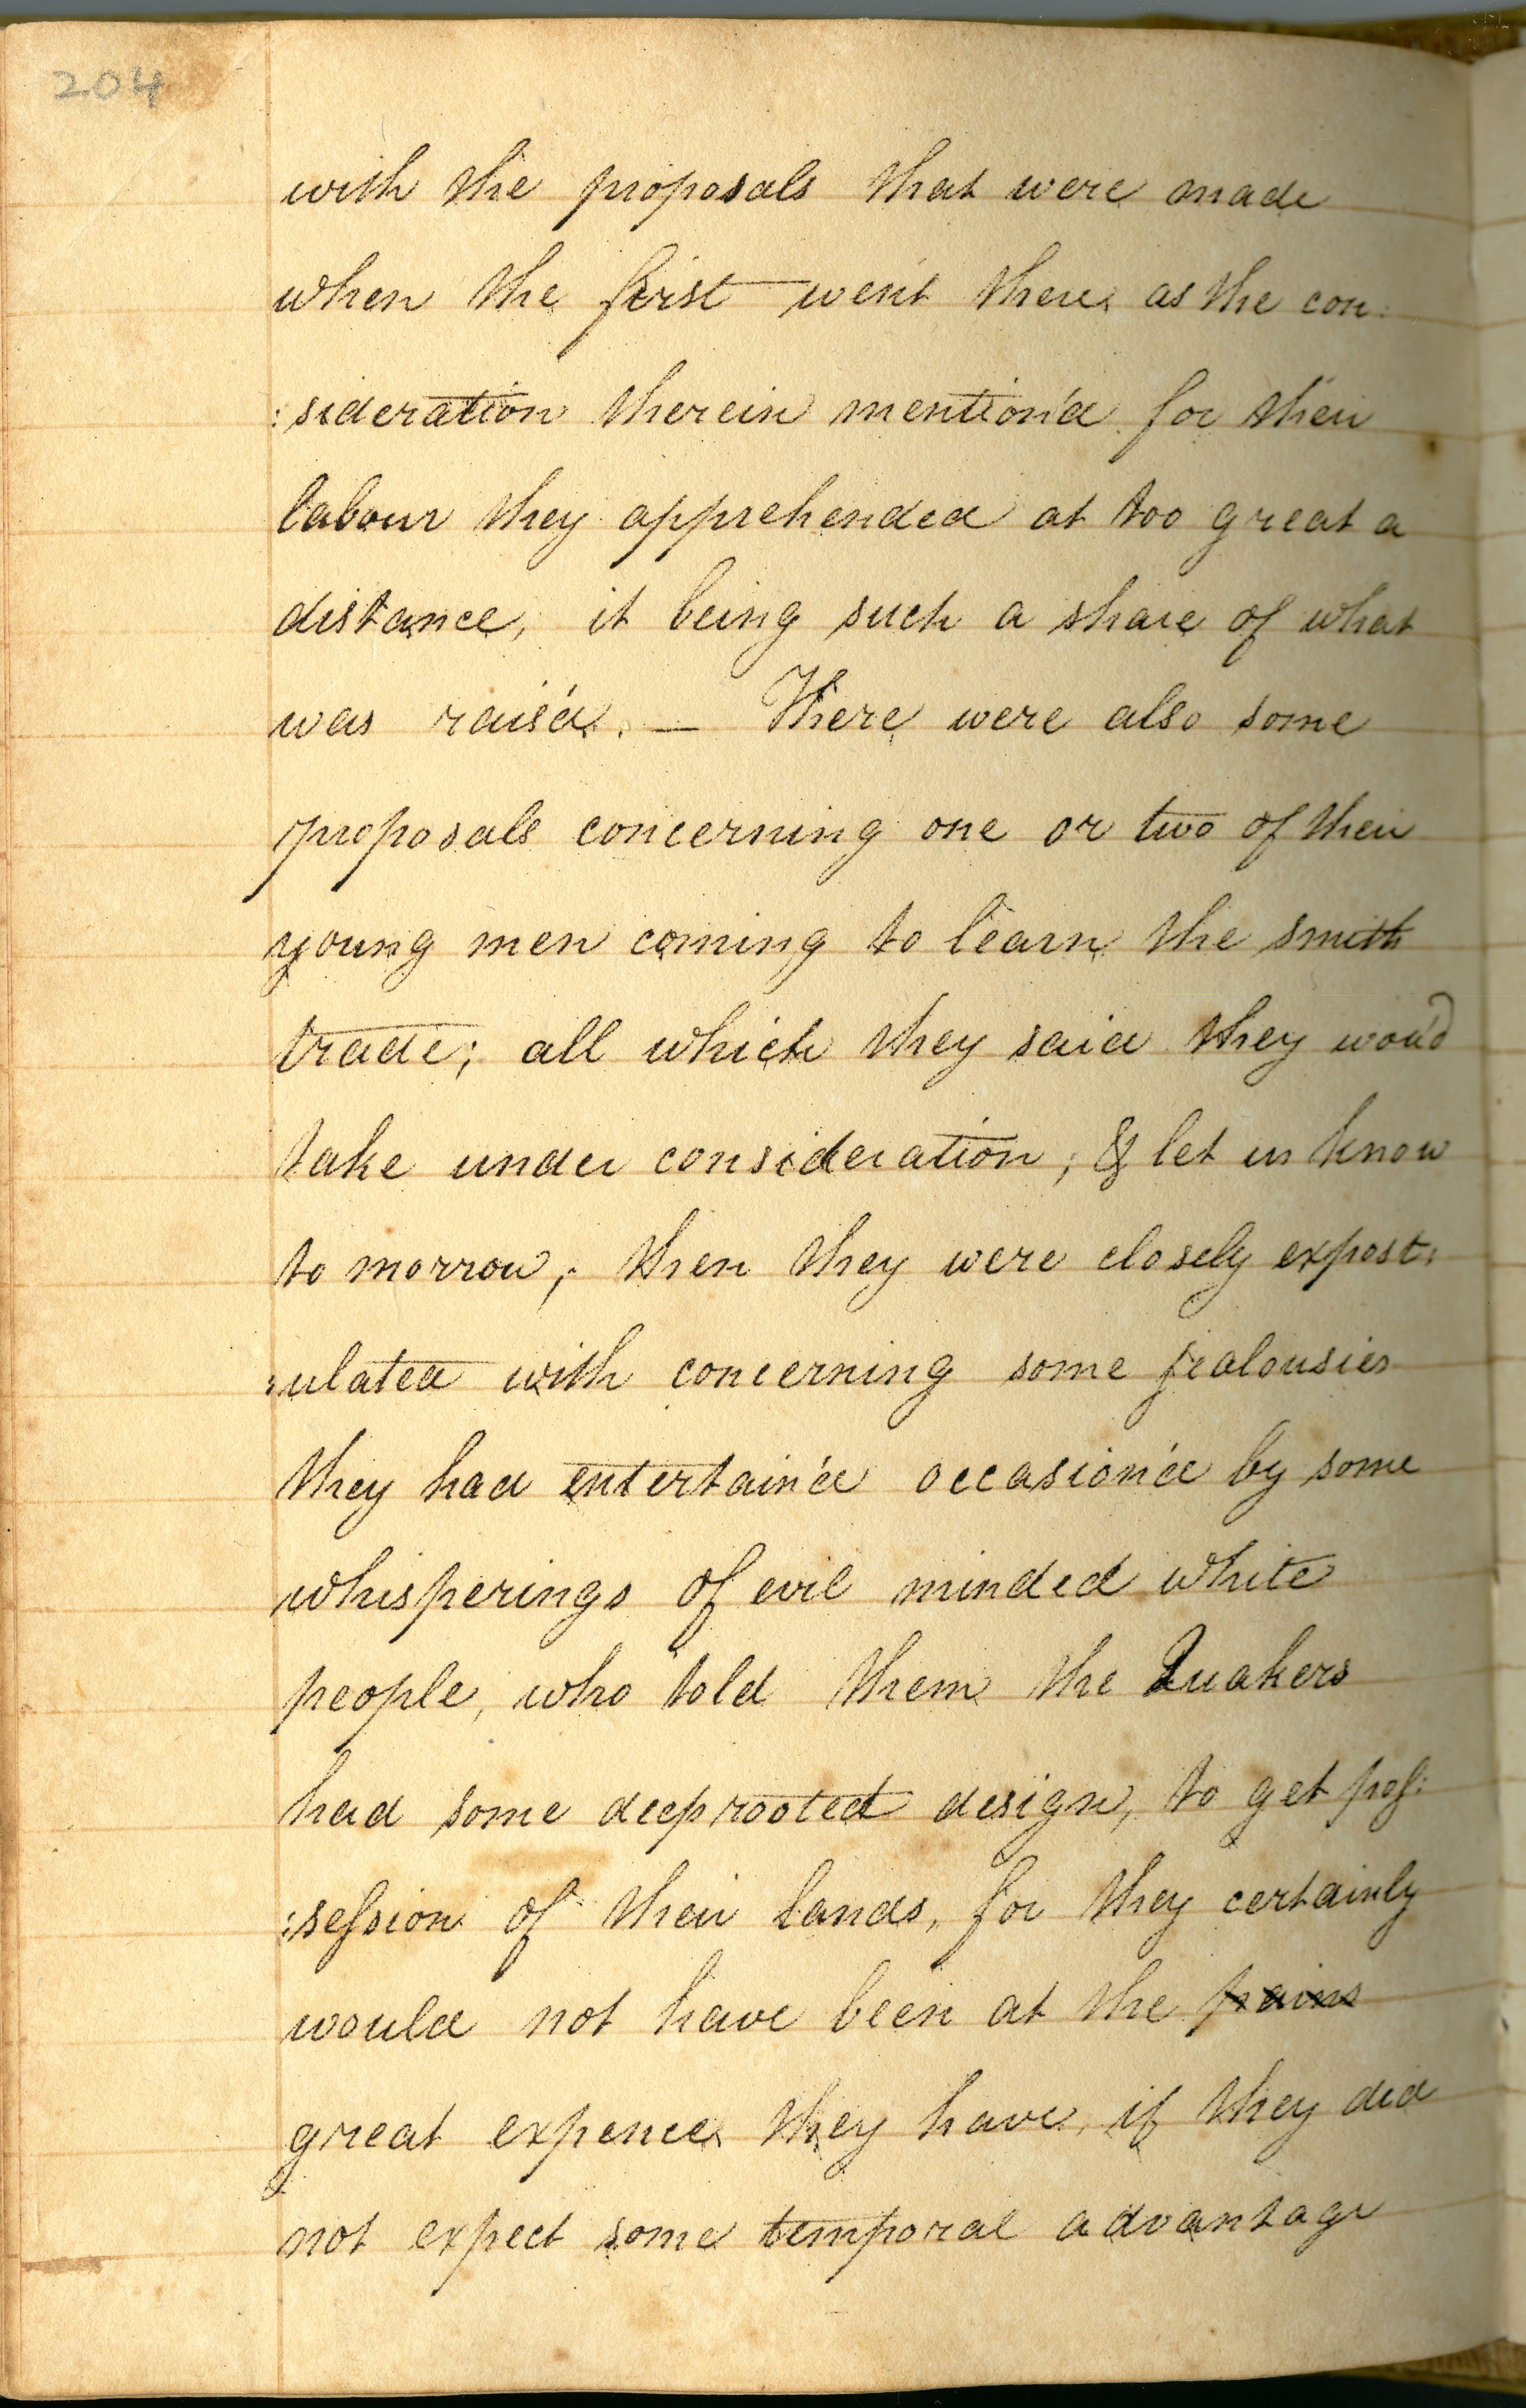 204
with the proposals that were made
when the first went there as the con:
:sideration therein mention'd for their
labour they apprehended at too great a
distance, it being such a share of what
was rais'd. — There were also some
proposals concerning one or two of their
young men coming to learn the smith
trade; all which they said they wou'd
take under consideration, & let us know
to morrow; then they were closely expost:
:ulated with concerning some jealousies
they had entertain'd occasion'd by some
whisperings of evil minded white
people, who told them the Quakers
had some deeprooted design, to get poſ:
:seſsion of their lands, for they certainly
would not have been at the pains
great expence they have, if they did
not expect some temporal advantage